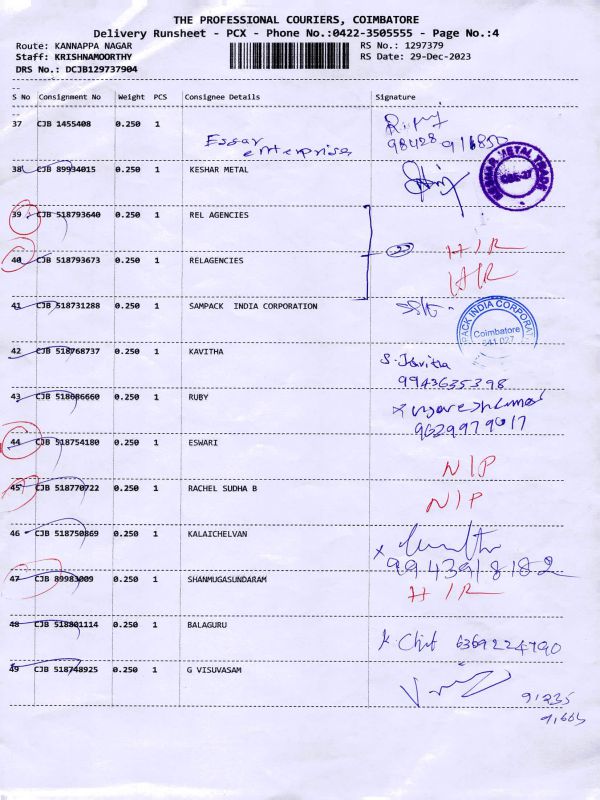 THE PROFESSIONAL COURIERS, COIMBATORE
Delivery Runsheet - PCX - Phone No.:0422-3505555 - Page No.:4
Route: KANNAPPA NAGAR RS No.: 1297379
Staff: KRISHNAMOORTHY RS Date: 29-Dec-2023
DRS No.: DCJB129737904
S No Consignment No Weight PCS Consignee Details Signature
37 CJB 1455408 0.250 1 Essar enterprises
38 CJB 89934015 0.250 1 KESHAR METAL
39 CJB 518793640 0.250 1 REL AGENCIES H/R
40 CJB 518793673 0.250 1 RELAGENCIES H/R
41 CJB 518731288 0.250 1 SAMPACK INDIA CORPORATION
PACK INDIA CORPORAT
Coimbatore
641 027
42 CJB 518768737 0.250 1 KAVITHA
9943635398
43 CJB 518686660 0.250 1 RUBY
9629979617
44 CJB 518754180 0.250 1 ESWARI N/P
45 CJB 518770722 0.250 1 RACHEL SUDHA B N/P
46 CJB 518750869 0.250 1 KALAICHELVAN
9943918182
47 CJB 89983009 0.250 1 SHANMUGASUNDARAM H/R
48 CJB 518801114 0.250 1 BALAGURU 6369224790
49 CJB 518748925 0.250 1 G VISUVASAM